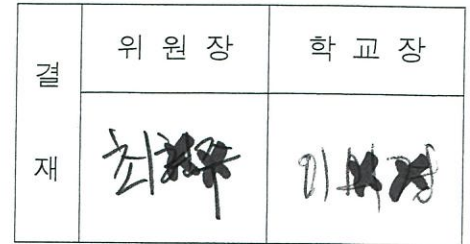 결재
위 원 장
학 교 장
최
이